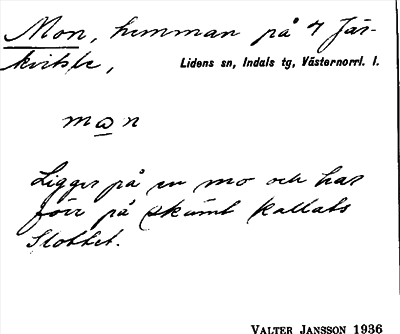 Mon, hemman på 7 Jär-
kvitsle,
Lidens sn, Indals tg, Västernorrl. l.
man
Ligger på en mo och har
förr på skämt kallats
Slottet.
VALTER JANSSON 1936